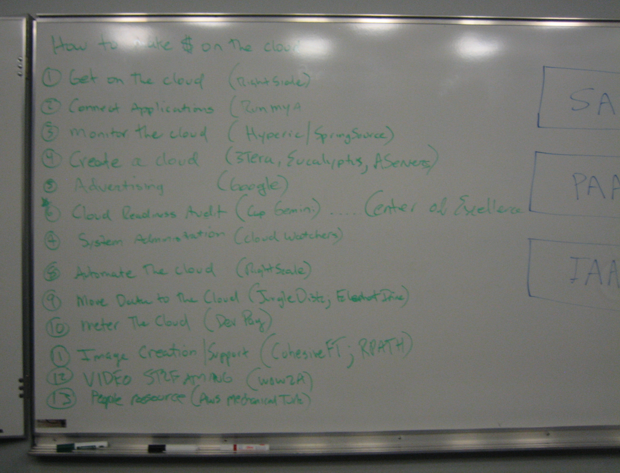 How to make $ on the cloud
① Get on the cloud (RightScale)
② Connect Applications (Runmya
③ Monitor the cloud (Hyperic/SpringSource)
④ Create a cloud (3Tera, Eucalyptus, AServers)
⑤ Advertising (Google)
⑥ Cloud Readiness Audit (Cap Gemini) .... Center of Excellence
⑦ System Administration (cloud watchers)
⑧ Automate The Cloud (RightScale)
⑨ Move Data to the Cloud (JungleDisk, Elephant Drive)
⑩ meter The Cloud (Dev Pay)
① Image Creation/Support (CohesiveFT; RPATH)
⑫ VIDEO STREAMING (WOWZA)
⑬ People resource (Aws Mechanical Turk)
SA
PAA
IAA